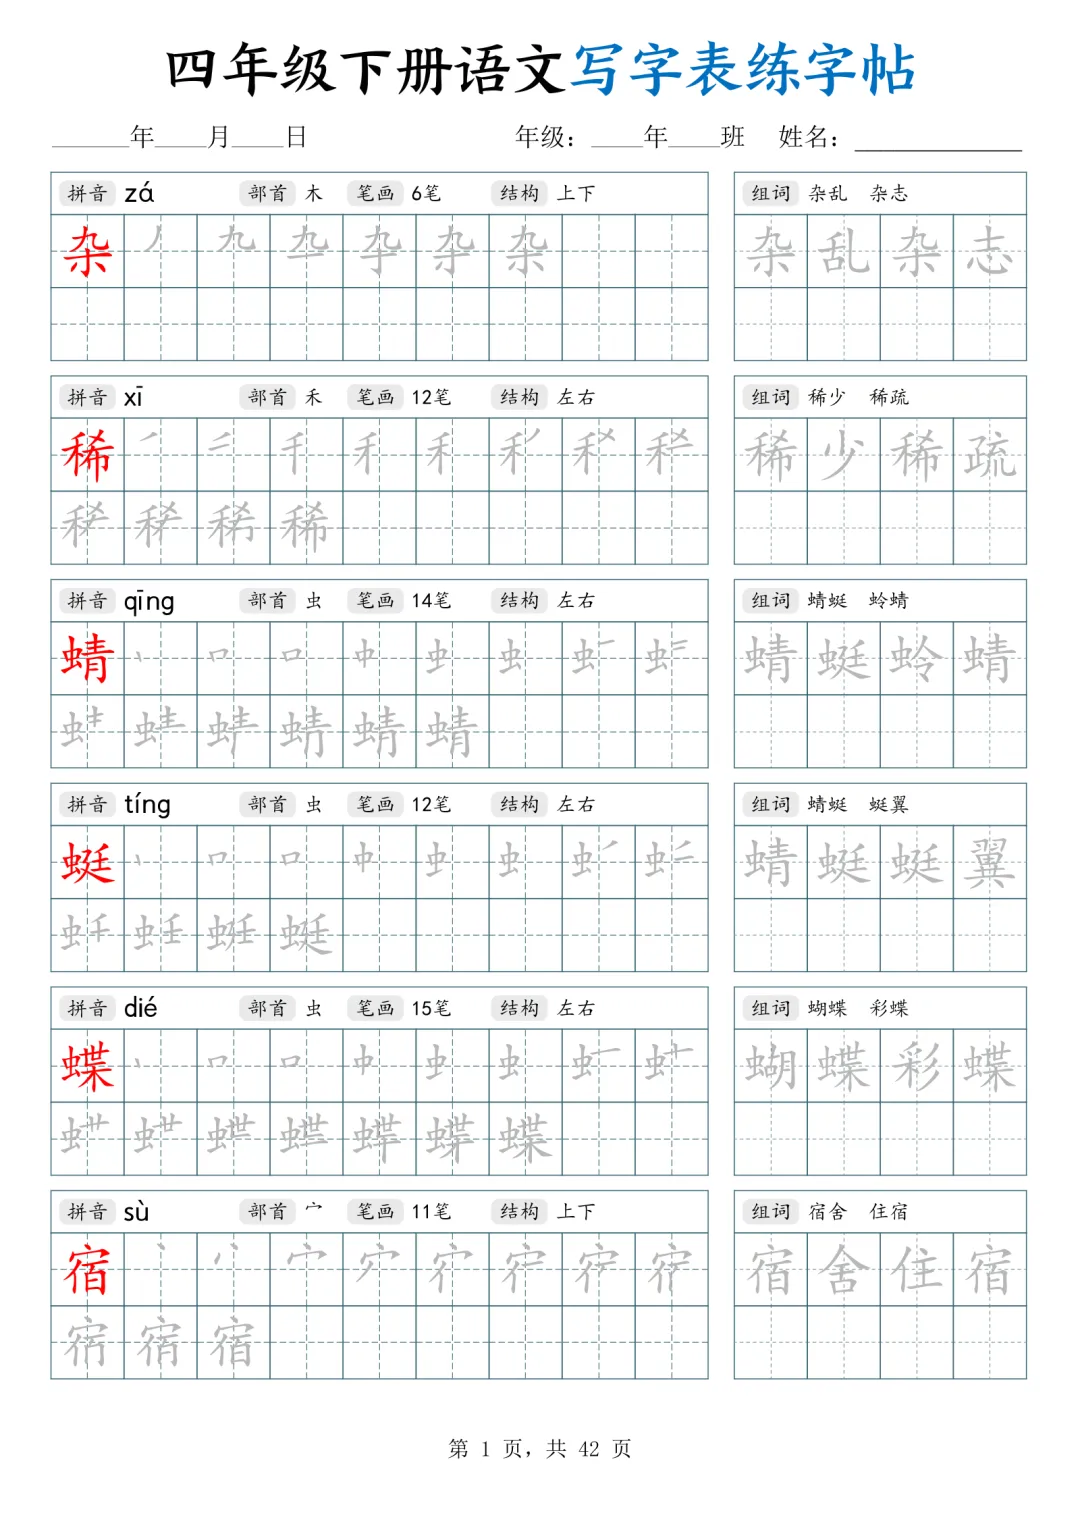 四年级下册语文写字表练字帖
______年____月____日 年级：____年____班 姓名：_____________
拼音 zá 部首 木 笔画 6笔 结构 上下 组词 杂乱 杂志
杂 杂 杂乱杂志
拼音 xī 部首 禾 笔画 12笔 结构 左右 组词 稀少 稀疏
稀 稀少稀疏
稀
拼音 qīng 部首 虫 笔画 14笔 结构 左右 组词 蜻蜓 蛉蜻
蜻 蜻蜓蛉蜻
蜻
拼音 tíng 部首 虫 笔画 12笔 结构 左右 组词 蜻蜓 蜓翼
蜓 蜻蜓蜓翼
蜓
拼音 dié 部首 虫 笔画 15笔 结构 左右 组词 蝴蝶 彩蝶
蝶 蝴蝶彩蝶
蝶
拼音 sù 部首 宀 笔画 11笔 结构 上下 组词 宿舍 住宿
宿 宿舍住宿
宿
第 1 页，共 42 页